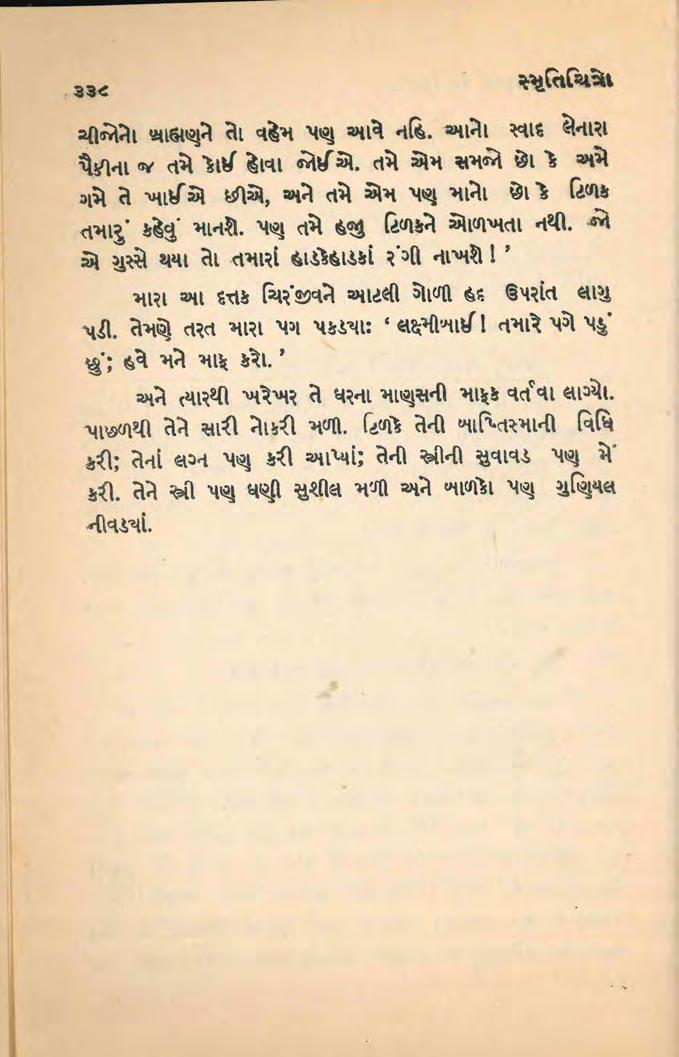 ૩૩૮
સ્મૃતિચિત્રો
ચીજોનો બ્રાહ્મણને તો વહેમ પણ આવે નહિ. આનો સ્વાદ લેનારા
પૈકીના જ તમે કોઈ હોવા જોઈએ. તમે એમ સમજો છો કે અમે
ગમે તે ખાઈએ છીએ, અને તમે એમ પણ માનો છો કે ટિળક
તમારું કહેવું માનશે. પણ તમે હજુ ટિળકને ઓળખતા નથી. જો
એ ગુસ્સે થયા તો તમારાં હાડકેહાડકાં રંગી નાખશે ! ’
મારા આ દત્તક ચિરંજીવને આટલી ગોળી હદ ઉપરાંત લાગુ
પડી. તેમણે તરત મારા પગ પકડ્યાઃ ‘ લક્ષ્મીબાઈ ! તમારે પગે પડું
છું; હવે મને માફ કરો. ’
અને ત્યારથી ખરેખર તે ઘરના માણસની માફક વર્તવા લાગ્યો.
પાછળથી તેને સારી નોકરી મળી. ટિળકે તેની બાપ્તિસ્માની વિધિ
કરી; તેનાં લગ્ન પણ કરી આપ્યાં; તેની સ્ત્રીની સુવાવડ પણ મેં
કરી. તેને સ્ત્રી પણ ઘણી સુશીલ મળી અને બાળકો પણ ગુણિયલ
નીવડ્યાં.